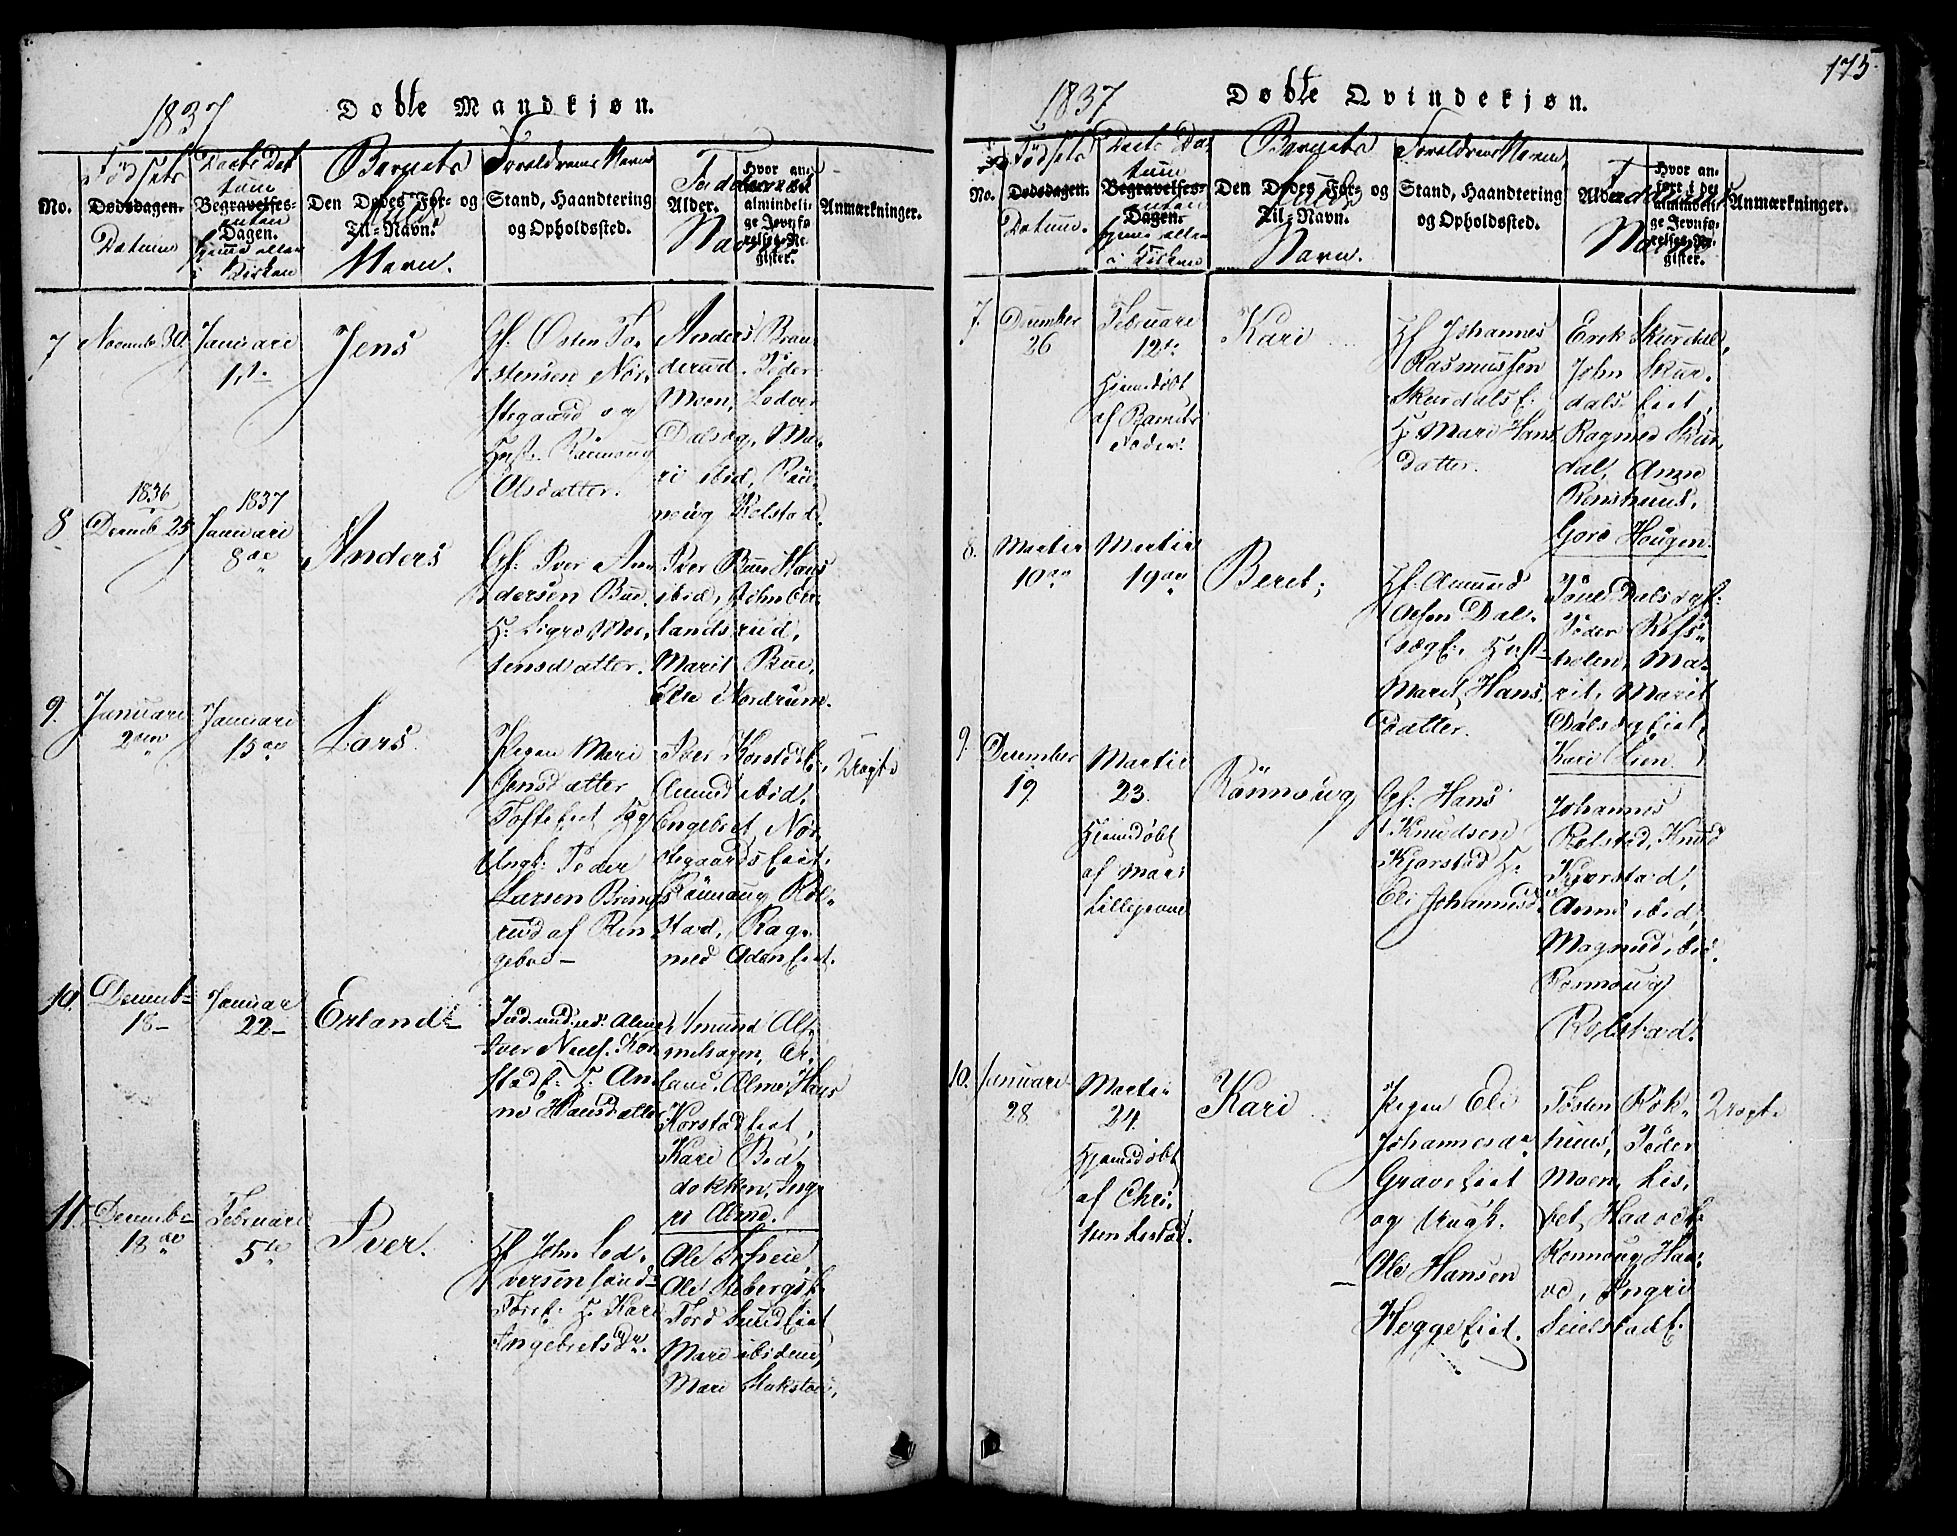 1837
Døbte Mandkjøn.
No.
Fødsels
Dødsdagen.
Datum
Daabs Da
tum
Begravelses-
Dagen.
hjemme eller
i Kirken
Barnets
Den Dødes For- og
fulde
Til-Navn.
Navn.
Forældrenes Navn
Stand, Haandtering
og Opholdssted.
Faddernes
Alder.
Navne
Hvor an-
almindeli-
ge Jevnfø-
relses-Re-
gister.
Anmærkninger.
7
Novemb 30.
Januari
1ste
Jens
Gf: Østen To-
stensen Nor-
stegaard og
Hust. Rannoug
Olsdatter.
Anders Bran-
derud. Peder
Moen, Lodver
Dalseg, Ma-
ri ibid, Ran-
noug Rolstad.
8
1836
Decemb 25
1837
Januari
8de
Anders
Gf: Iver An-
dersen Bue.
H: Sigri Mor-
tensdatter.
Iver Bue, Hans
ibid, John
landsrud,
Marit Bue,
Nordrum.
9.
Januari
2den
Januari
15de
Lars
Pigen Mari
Jensdatter
Tofte Eiet og
Ungk: Peder
Larsen Brings-
rud af Rin-
geboe-
Iver Korstad E:,
Amund ibid,
Engebret Nor-
stegaards Eiet.
Rannoug Rol-
stad, Rag-
ned Eiet.
Uægte
10.
Decemb-
18-
Januar
22-
Erland-
Iver Niels. Kor-
stad E: H: An-
ne Hansdatter
Amund
melhagen, Er-
land Alme, Hans
Korstad Eiet,
Kari Bod-
dokken, Ing-
ri Alme.
11.
Decemb-
18de
Februari
5te
Iver.
Hf John Lod-
versen Sand-
H: Kari
Engebretsdr.
Ole Lofreie,
Ole Steberg E.
Tord Sund Eiet
Mari ibidem,
Mari Stakston,
175
1837
Døbte Qvindekjøn.
No.
Fødsels
Dødsdagen.
Datum.
Daabs Da-
tum
Begravelses-
Dagen.
hjemme eller
i Kirken
Barnets
Den Dødes For- og
fulde
Til-Navn.
Navn.
Forældrenes Navn,
Stand, Haandtering
og Opholdssted.
Alder.
Faddernes
Navne
Hvor an-
ført i det
almindeli-
ge Jevnfø-
relses-Re-
gister.
Anmærkninger.
7.
December
26
Februari
12te
Hjemdøbt
af Barnets
Fader.
Kari
Hf Johannes
Rasmussen
Skurdals E.
H: Mari Hans
datter.
Erik Skurdal,
John Skur-
dals Eiet,
Ragned Skur-
dal, Anne
Rønshuus,
Goro Haugen.
8.
Martii
10de
Martii
19de
Beret;
Hf: Amund
Olsen Dal-
seg E. Hust-
Marit Hans
datter.
Poul Dalseg E:
Peder Refs-
holen, Ma-
rit, Marit
Dalseg Eiet,
Kari Lien.
9.
December
19
Martii
23.
Hjemdøbt
af Mari
Lillegaard
Rønnoug
Gf: Hans
Knudsen
Kjorstad H:
Eli Johannesdr
Johannes
Rolstad, Knud
Kjorstad,
Anne ibid,
Magnild ibid.
Ronnoug
Rolstad.
10.
Januari
28
Martii
24.
Hjemdøbt
af Chri-
sten Listad.
Kari
Pigen Eli
Johannesdr
Grave Eiet
og Ungk.
Ole Hansen
Hegge Eiet.
Tosten Røk-
huus, Peder
Moen, Lis-
bet Haave E.
Ronnoug Haa-
ve, Ingri
Seielstad E.
Uægte